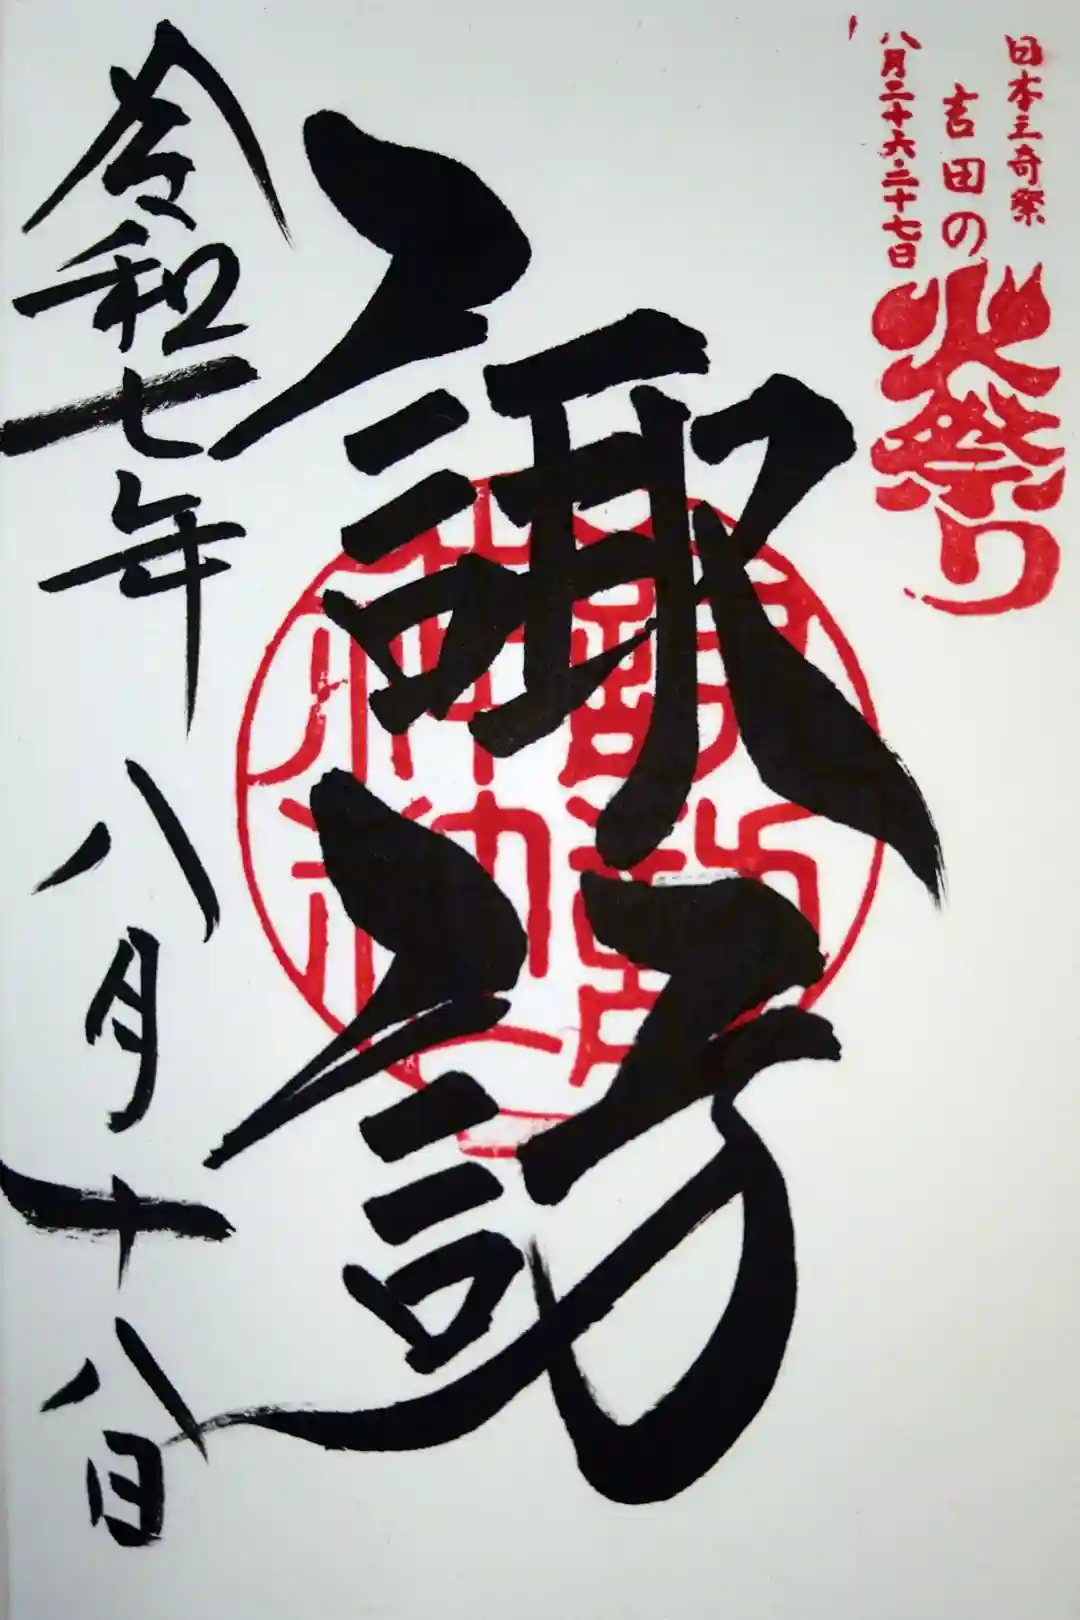 日本三奇祭
吉田の
火祭り
八月二十六・二十七日
諏訪
令和七年
八月十八日